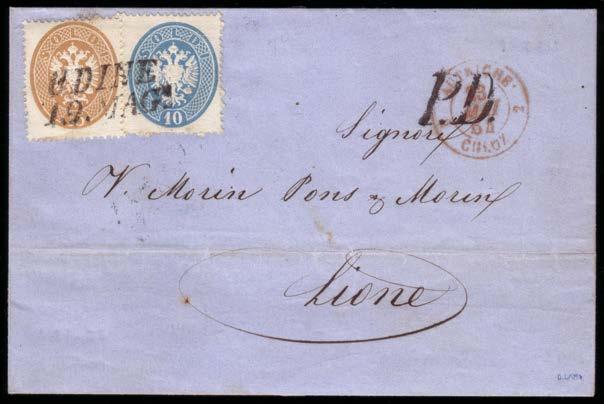 UDINE
19. MAG
10
P.D.
CULOZ
2
Signori
V. Morin Pons & Morin
Lione